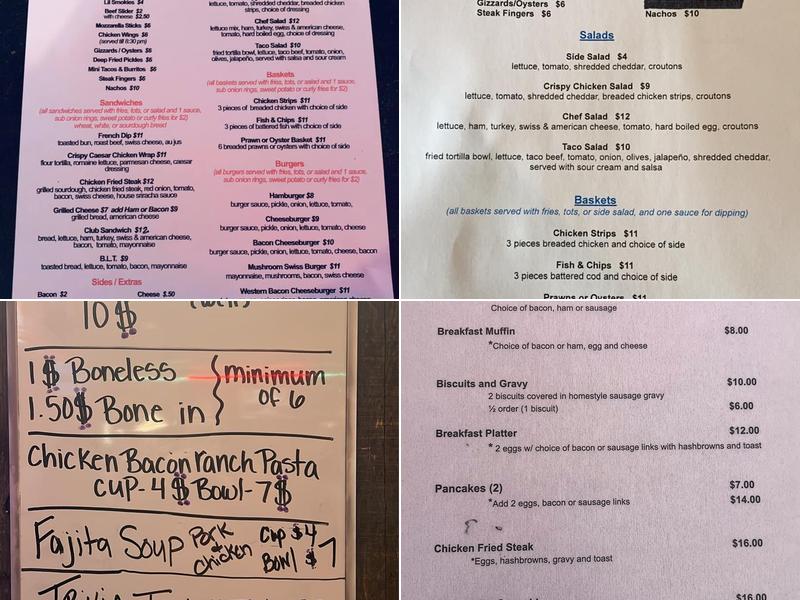 Lil Smokies $4
Beef Slider $2
with cheese $2.50
Mozzarella Sticks $6
Chicken Wings $6
(served till 8:30 pm)
Gizzards / Oysters $6
Deep Fried Pickles $6
Mini Tacos & Burritos $6
Steak Fingers $6
Nachos $10
Sandwiches
(all sandwiches served with fries, tots, or salad and 1 sauce,
sub onion rings, sweet potato or curly fries for $2)
wheat, white, or sourdough bread
French Dip $11
toasted bun, roast beef, swiss cheese, au jus
Crispy Caesar Chicken Wrap $11
flour tortilla, romaine lettuce, parmesan cheese, caesar
dressing
Chicken Fried Steak $12
grilled sourdough, chicken fried steak, red onion, tomato,
bacon, swiss cheese, house sriracha sauce
Grilled Cheese $7 add Ham or Bacon $9
grilled bread, american cheese
Club Sandwich $12
bread, lettuce, ham, turkey, swiss & american cheese,
bacon, tomato, mayonnaise
B.L.T. $9
toasted bread, lettuce, tomato, bacon, mayonnaise
Sides / Extras
Bacon $2 Cheese $.50
lettuce, tomato, shredded cheddar, breaded chicken
strips, choice of dressing
Chef Salad $12
lettuce mix, ham, turkey, swiss & american cheese,
tomato, hard boiled egg, choice of dressing
Taco Salad $10
fried tortilla bowl, lettuce, taco beef, tomato, onion,
olives, jalapeño, served with salsa and sour cream
Baskets
(all baskets served with fries, tots, or salad and 1 sauce,
sub onion rings, sweet potato or curly fries for $2)
Chicken Strips $11
3 pieces of breaded chicken with choice of side
Fish & Chips $11
3 pieces of battered fish with choice of side
Prawn or Oyster Basket $11
6 breaded prawns or oysters with choice of side
Burgers
(all burgers served with fries, tots, or salad and 1 sauce,
sub onion rings, sweet potato or curly fries for $2)
Hamburger $8
burger sauce, pickle, onion, lettuce, tomato,
Cheeseburger $9
burger sauce, pickle, onion, lettuce, tomato, cheese
Bacon Cheeseburger $10
burger sauce, pickle, onion, lettuce, tomato, cheese, bacon
Mushroom Swiss Burger $11
mayonnaise, mushrooms, bacon, swiss cheese
Western Bacon Cheeseburger $11
Gizzards/Oysters $6
Steak Fingers $6
Nachos $10
Salads
Side Salad $4
lettuce, tomato, shredded cheddar, croutons
Crispy Chicken Salad $9
lettuce, tomato, shredded cheddar, breaded chicken strips, croutons
Chef Salad $12
lettuce, ham, turkey, swiss & american cheese, tomato, hard boiled egg, croutons
Taco Salad $10
fried tortilla bowl, lettuce, taco beef, tomato, onion, olives, jalapeño, shredded cheddar,
served with sour cream and salsa
Baskets
(all baskets served with fries, tots, or side salad, and one sauce for dipping)
Chicken Strips $11
3 pieces breaded chicken and choice of side
Fish & Chips $11
3 pieces battered cod and choice of side
Prawns or Oysters $11
10$
1$ Boneless
1.50$ Bone in
minimum
of 6
Chicken Bacon ranch Pasta
CUP-4$ Bowl-7$
Fajita Soup Pork & Chicken Cup $4
Bowl $7
Choice of bacon, ham or sausage
Breakfast Muffin $8.00
*Choice of bacon or ham, egg and cheese
Biscuits and Gravy $10.00
2 biscuits covered in homestyle sausage gravy
½ order (1 biscuit) $6.00
Breakfast Platter $12.00
* 2 eggs w/ choice of bacon or sausage links with hashbrowns and toast
Pancakes (2) $7.00
*Add 2 eggs, bacon or sausage links $14.00
Chicken Fried Steak $16.00
*Eggs, hashbrowns, gravy and toast
$16.00